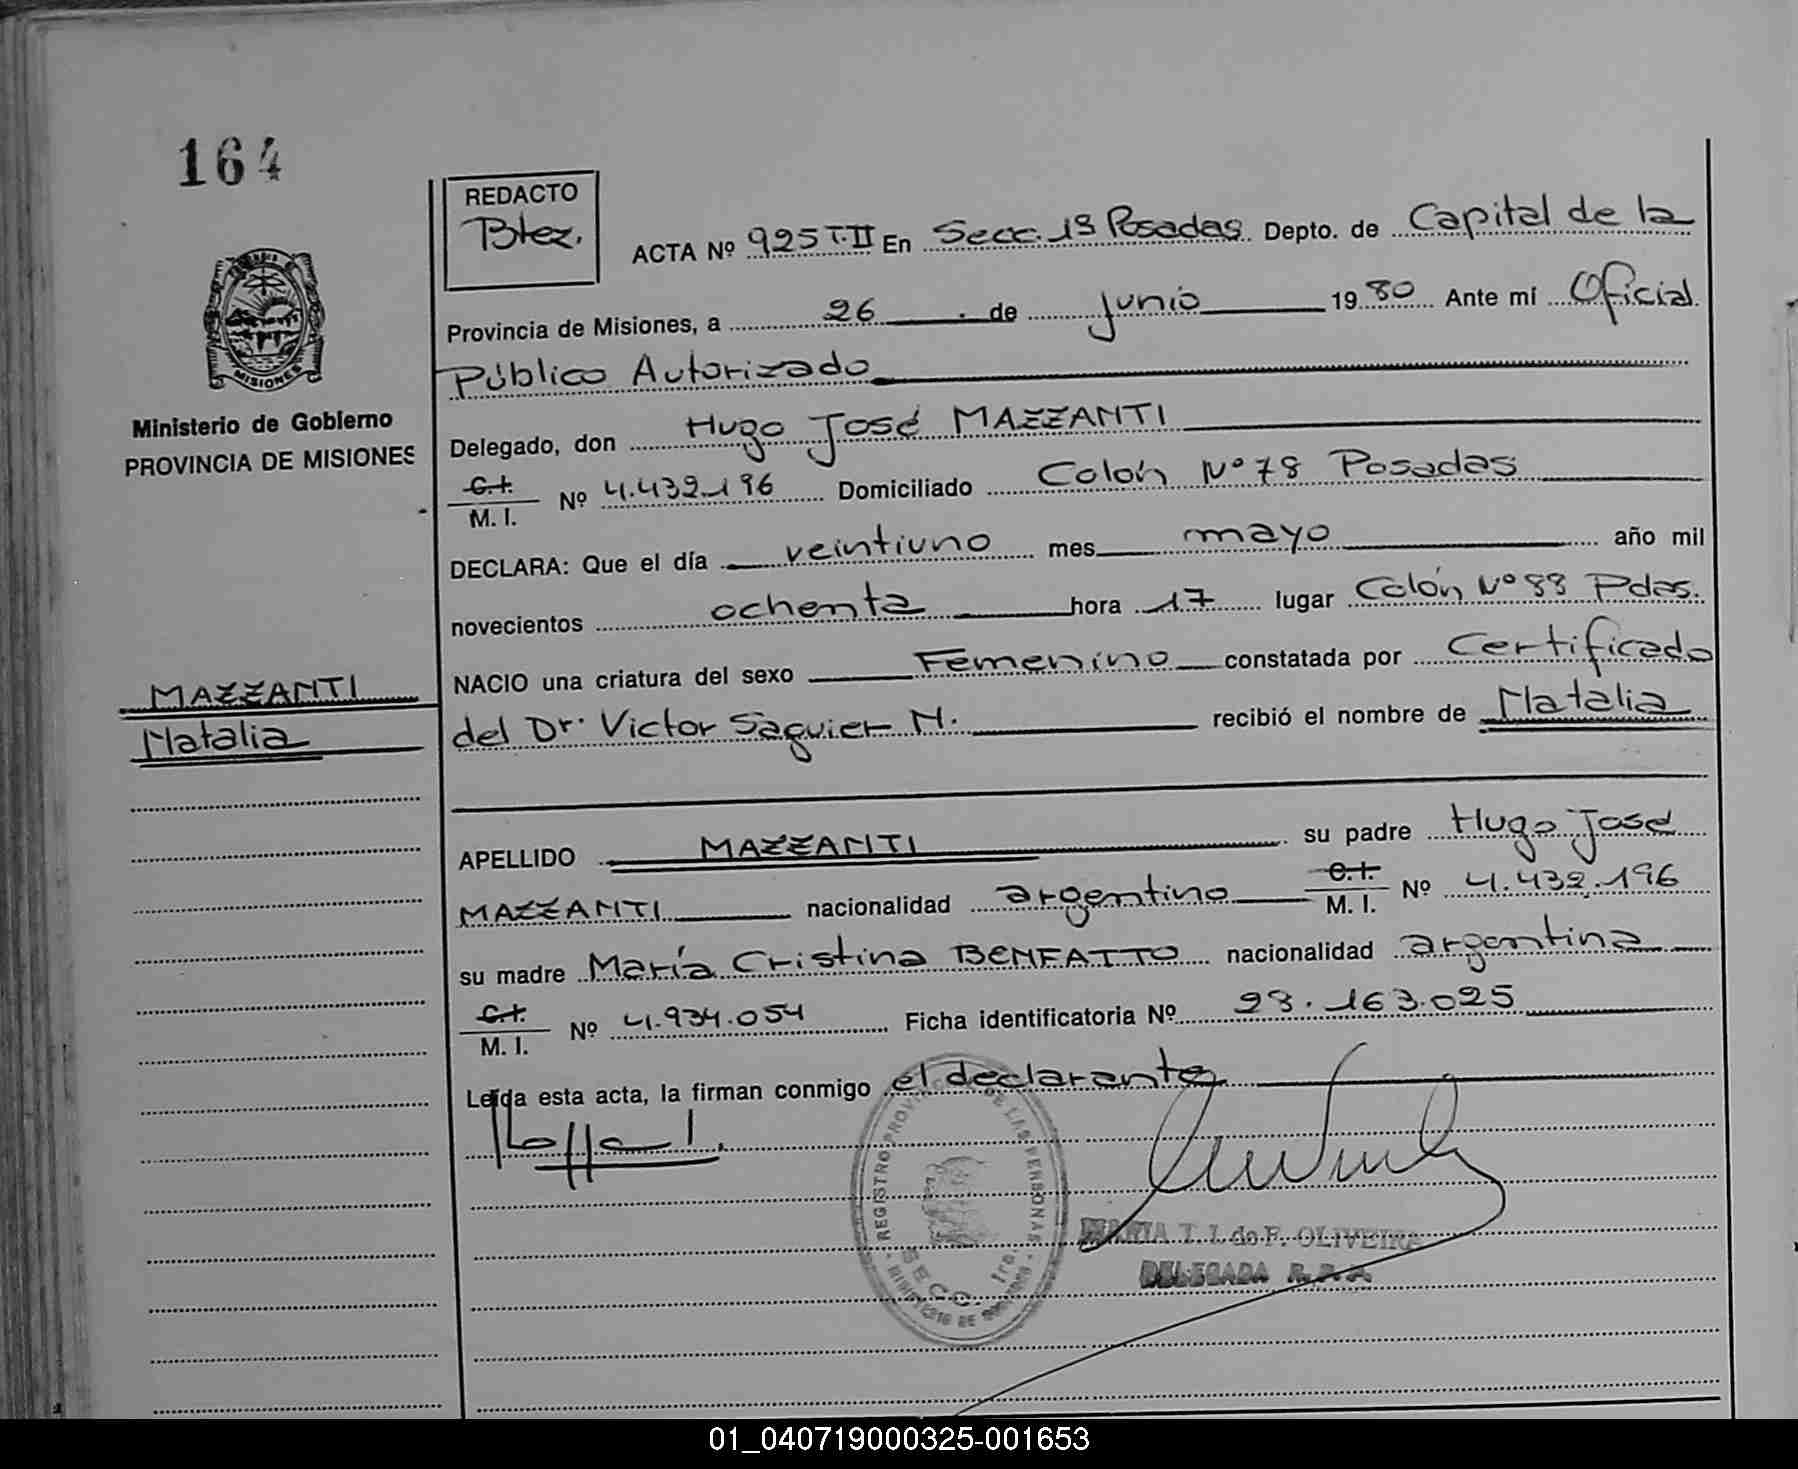 164
REDACTO
Btez.
ACTA Nº 925 T.II En Secc. 1ª Posadas Depto. de Capital de la
Provincia de Misiones, a 26 de junio 1980 Ante mí Oficial
Público Autorizado
Delegado, don Hugo José MAZZANTI
C.I. / M. I. Nº 4.432.196 Domiciliado Colón Nº 78 Posadas
DECLARA: Que el día veintiuno mes mayo año mil
novecientos ochenta hora 17 lugar Colón Nº 88 Pdas.
NACIO una criatura del sexo Femenino constatada por Certificado
del Dr. Victor Saguier N. recibió el nombre de Natalia
APELLIDO MAZZANTI su padre Hugo José
MAZZANTI nacionalidad argentino C.I. / M. I. Nº 4.432.196
su madre María Cristina BENFATTO nacionalidad argentina
C.I. / M. I. Nº 4.934.054 Ficha identificatoria Nº 28.163.025
Leída esta acta, la firman conmigo el declarante
MISIONES
Ministerio de Gobierno
PROVINCIA DE MISIONES
MAZZANTI
Natalia
REGISTRO PROV DE LAS PERSONAS
SECC. 1ra.
MINISTERIO DE GOBIERNO
MARIA T. I. de F. OLIVEIRA
DELEGADA R.P.P.
01_040719000325-001653